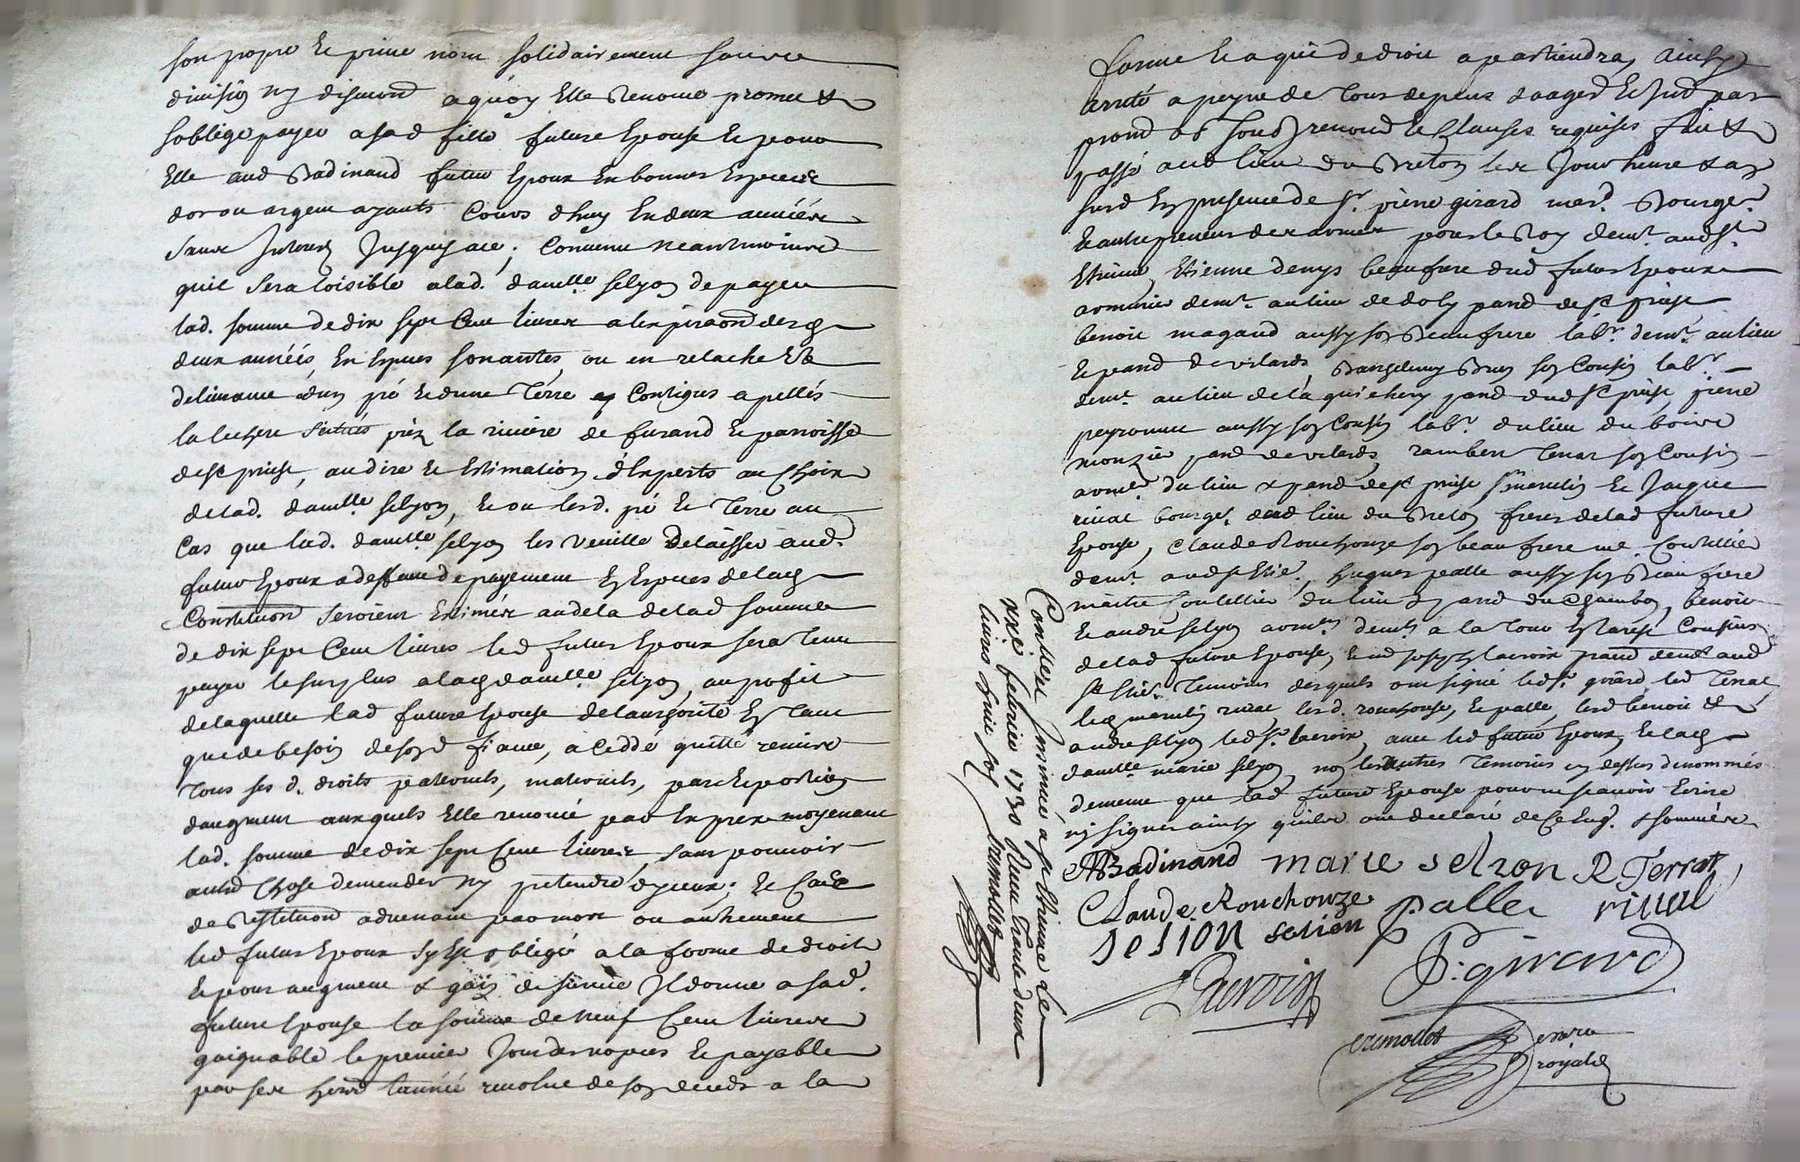 son propre et prive nom solidairement sans
division ny dismond a quoy Elle Renonce promet &
soblige payer a sad fille future Epouse et pour
Elle aud Badinand futur Epoux En bonnes Especes
dor ou argent ayants Cours dhuy En deux années
sans Interest Jusqu'ace; Convenu neantmoins
quil sera loisible a lad. damlle selyon de payer
lad. somme de dix sept Cent livres a lexpiraon desd
deux années, En Espces sonantes, ou en relache Et
delivrance dun pré Et dune Térre Contigus apellés
la lechere situés prez la riviere de furand Et parroisse
de st priest, au dire Et Estimation d'Experts au Choix
de lad. damlle selyon, Et ou lesd. pré Et Terre au
Cas que lad. damlle selyon les veuille delaisser aud.
futur Epoux a deffaut de payement En Espces de lad
Constitution seroient Estimés audela de lad somme
de dix sept Cent livres led futur Epoux sera tenu
payer le surplus a lad damlle selyon, au profit
de laquelle lad future Epouse de lauthorité En tant
que de besoin de sond fiancé, a Ceddé quitté remis
tous ses d. droits paternels, maternels, part Et portion
daugment auxquels Elle renonce par Exprex moyenant
lad. somme de dix sept Cent livres, sans pouvoir
autre Chose demender ny pretendre d'yceux; Et Cas
de restitution advenant par mort ou autrement
led futur Epoux sy Est obligé a la forme de droit
Et pour augment & gain de survie Il donne a sad.
future Epouse la somme de neuf Cent livres
gaignable le premier Jour des nopces Et payable
par ses heirs lannée revolue de son deceds a la
forme Et a qui de droit apartiendra, ainsy
arreté a peyne de tous depens domages Et Intd par
promd ob soud renond Et Clauses requises fait &
passé aud lieu du Breton les Jour heure & an
susd En presence de sr. pierre girard merd. Bourgs.
Et autrepreneur des armes pour le Roy demt. aud st.
Etienne, Etienne denys beaufrere dud futur Epoux
armurier demt. au lieu de doly parrd de st priest
benoit magand aussy son Beaufrere labr. demt. au lieu
Et parrd de vilards, Bartelemy Brun son Cousin labr.
demt. au lieu de la quichery parrd dud st priest, pierre
peyronnet aussy son Cousin labr. du lieu du boire
monzie, parrd de vilards, rambert Terrat son Cousin
armer. du lieu & parrd de st priest, marcelin Et Jacque
rivat bourgs. dud lieu du Breton freres de lad future
Epouse, Claude Rouchouze son beaufrere me. Coutellier
demt aud st Etie., hugues palle aussy son Beaufrere
maitre Coutellier du lieu Et parrd du Chambon, benoit
Et andré selyon armrs demts a la Tour En Jarest Cousins
de lad future Epouse, Et md Joseph lacroix pratd demt aud
st Etie. Temoins desquels ont signé led sr. girard led Terrat
led marcelin rivat lesd. rouchouse, Et palle, lesd benoit &
andre selyon led sr. lacroix, avec led futur Epoux, Et lad
damlle. marie selyon, non les autres Temoins cy dessus denommés
de meme que lad future Epouse pour ne scavoir Ecrire
ny signer ainsy quils ont declaré de Ce Enq. & sommés
ABadinand marie selion R Terrat
Claude Rouchouze palle rivat
selion selion
Lacroix P: girard
cramottet nore
royald
Controllé Insinué a st Etienne le
xxe fevrier 1730 Recu trente deux
livres huit sols
cramottet